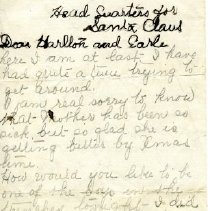 Head Quarters for
Santa Claus
Dear Harllon and Earle
here I am at last I have
had quite a time trying to
get around.
I am real sorry to know
that Mother has been so
sick, but so glad she is
getting better by Xmas
time.
How would you like to be
one of the boys in the
I did